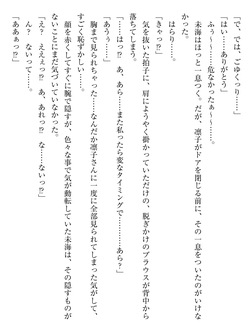 「で、では、ごゆっくり……」
「はい……ありがとう」
ふう～～……危なかったぁ～～……。
未海はほっと一息つく。だが、凛子がドアを閉じる前に、その一息をついたのがいけな
かった。
はらり……。
「きゃっ⁉」
気を抜いた拍子に、肩にようやく掛かっていただけの、脱ぎかけのブラウスが背中から
落ちてしまう。
「あうぅ……」
「……はっ⁉　あ、あら……また私ったら変なタイミングで……あら？」
胸まで見られちゃった……なんだか凛子さんに一度に全部見られてしまった気がして、
すごく恥ずかしい……。
顔を赤くしてすぐに腕で隠すが、色々な事で気が動転していた未海は、その隠すものが
ないことにまだ気づいていなかった。
「え？　ええぇっ⁉　あ、あれっ⁉　な……ないっ⁉」
な、ないって……。
「ああぁっ⁉」